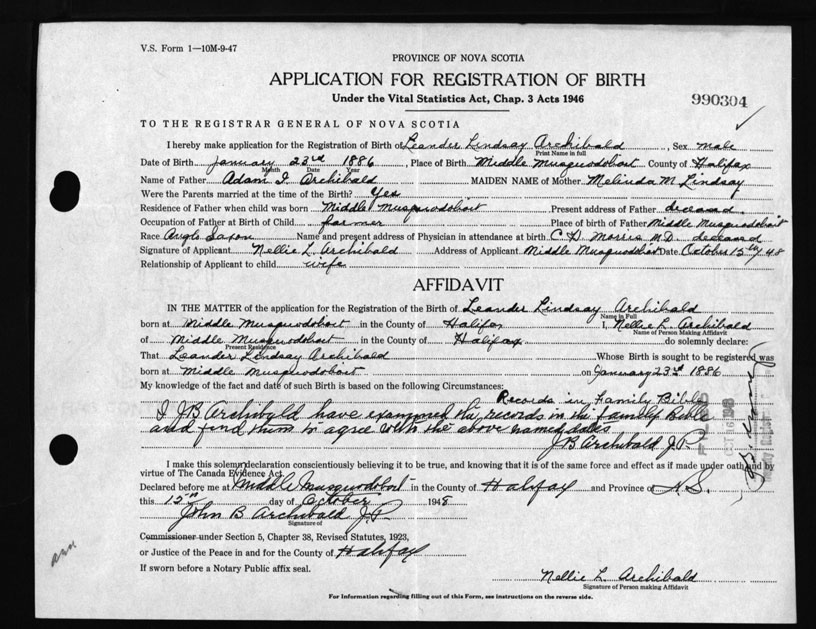 V.S. Form 1—10M-9-47
PROVINCE OF NOVA SCOTIA
APPLICATION FOR REGISTRATION OF BIRTH
Under the Vital Statistics Act, Chap. 3 Acts 1946
990304
TO THE REGISTRAR GENERAL OF NOVA SCOTIA
I hereby make application for the Registration of Birth of Leander Lindsay Archibald, Sex male
Print Name in full
Date of Birth January 23rd 1886, Place of Birth Middle Musquodoboit County of Halifax
Month Date Year
Name of Father Adam I. Archibald MAIDEN NAME of Mother Melinda M Lindsay
Were the Parents married at the time of the Birth? Yes
Residence of Father when child was born Middle Musquodoboit Present address of Father deceased
Occupation of Father at Birth of Child farmer Place of birth of Father Middle Musquodoboit
Race Anglo Saxon Name and present address of Physician in attendance at birth C. D. Morris M.D. deceased
Signature of Applicant Nellie L. Archibald Address of Applicant Middle Musquodoboit Date October 15th/48
Relationship of Applicant to child wife
AFFIDAVIT
IN THE MATTER of the application for the Registration of Birth of Leander Lindsay Archibald
Name in Full
born at Middle Musquodoboit in the County of Halifax I, Nellie L. Archibald
Name of Person Making Affidavit
of Middle Musquodoboit in the County of Halifax do solemnly declare:
Present Residence
That Leander Lindsay Archibald Whose Birth is sought to be registered was
born at Middle Musquodoboit on January 23rd 1886
My knowledge of the fact and date of such Birth is based on the following Circumstances:
Records in Family Bible
I JB Archibald have examined the records in the family Bible
and find them to agree with the above named dates
JB Archibald J.P.
I make this solemn declaration conscientiously believing it to be true, and knowing that it is of the same force and effect as if made under oath and by
virtue of The Canada Evidence Act.
Declared before me at Middle Musquodoboit in the County of Halifax and Province of N.S.
this 15th day of October 1948
John B Archibald J.P.
Signature of
Commissioner under Section 5, Chapter 38, Revised Statutes, 1923,
or Justice of the Peace in and for the County of Halifax
If sworn before a Notary Public affix seal.
Nellie L. Archibald
Signature of Person making Affidavit
For Information regarding filling out of this Form, see instructions on the reverse side.